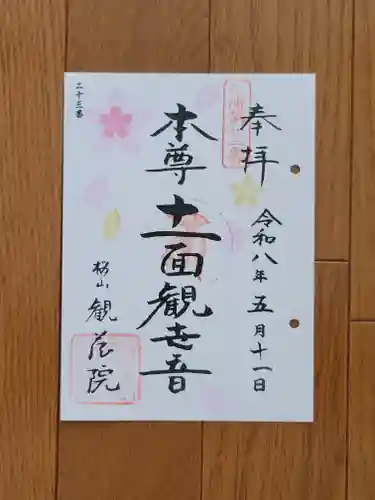 奉拝
令和八年五月十一日
本尊十一面観世音
桜山観音院
二十三番